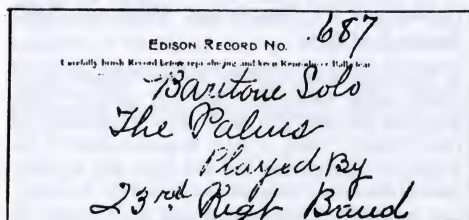 EDISON RECORD No. 687
Carefully brush Record before reproducing and keep Reproducer Ball clean
Baritone Solo
The Palms
Played By
23rd Regt Band